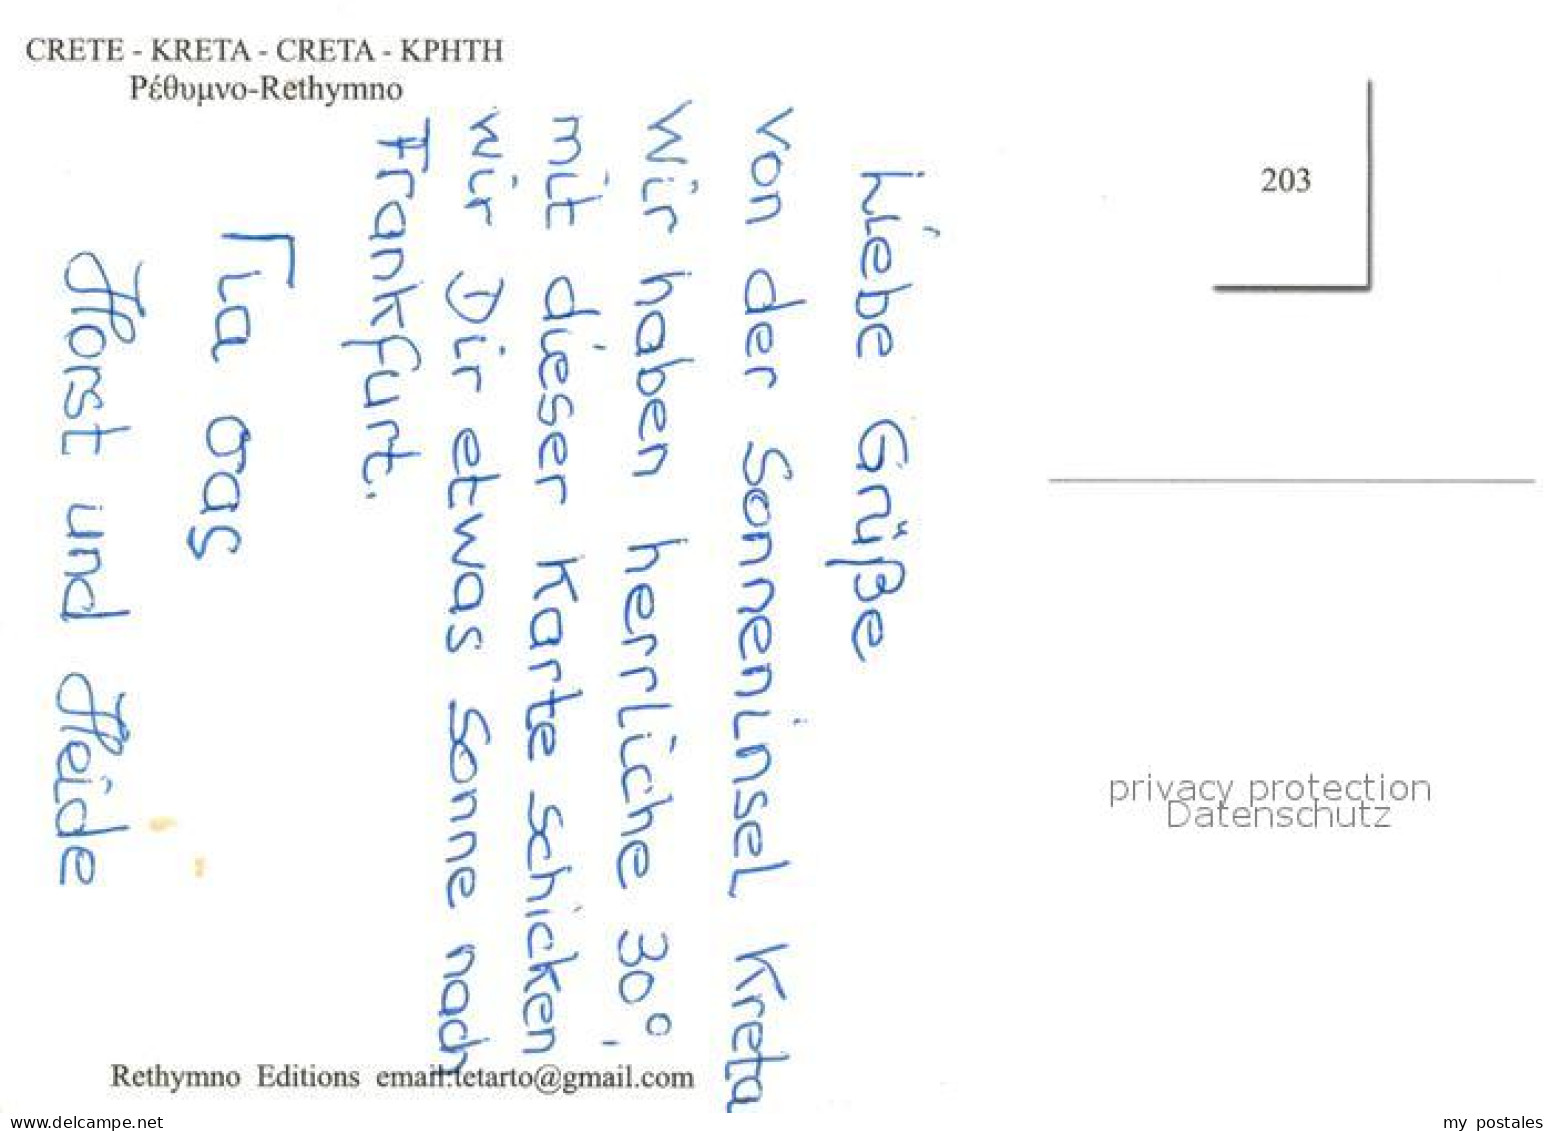 CRETE - KRETA - CRETA - ΚΡΗΤΗ
Ρέθυμνο-Rethymno
203
Liebe Grüße
von der Sonneninsel Kreta
Wir haben herrliche 30°,
mit dieser Karte schicken
wir Dir etwas Sonne nach
Frankfurt.
Γιa σας
Horst und Heide
privacy protection
Datenschutz
Rethymno Editions email:tetarto@gmail.com
www.delcampe.net
my_postales